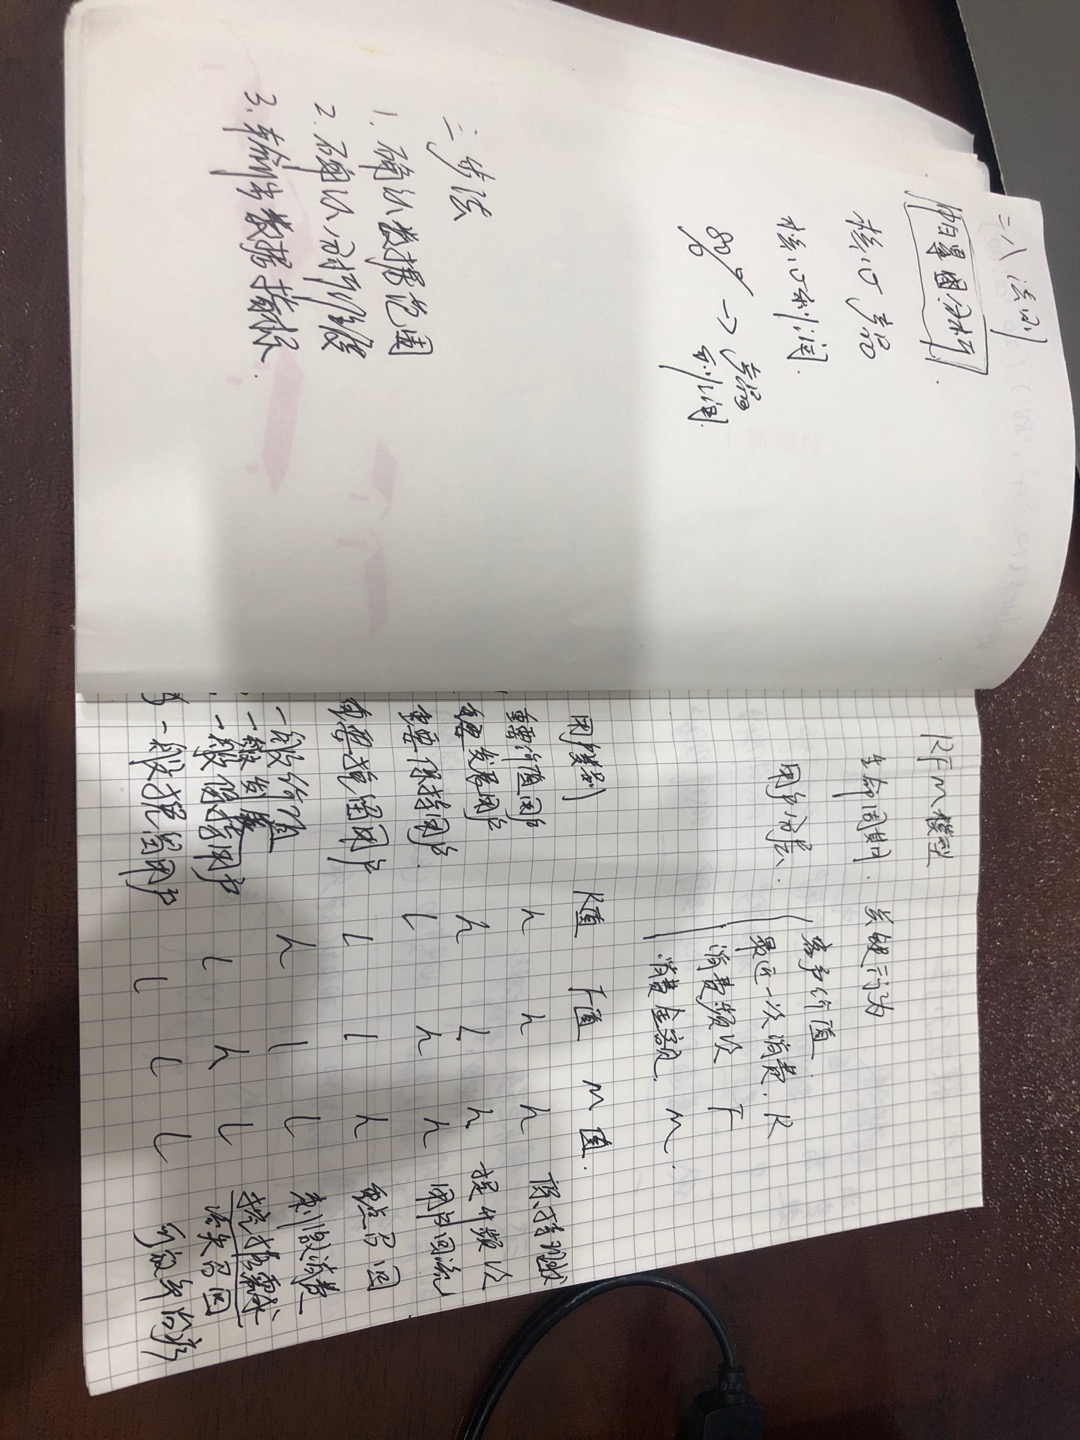 二八法则
帕累图分析
核心产品
核心利润
80% → 产品
利润
三步法
1. 确认数据范围
2. 确认分析维度
3. 输出数据指标
RFM模型
生命周期 关键行为
用户分层
客户价值
最近一次消费 R
消费频次 F
消费金额 M
用户类别 R值 F值 M值
重要价值用户 h h h 保持现状
重要发展用户 h L h 提升频次
重要保持用户 L h h 用户回流
重要挽留用户 L L h 重点召回
一般价值 h L L 刺激消费
一般发展
一般保持用户 L h L 挖掘需求
流失召回
一般挽留用户 L L L 可放弃治疗